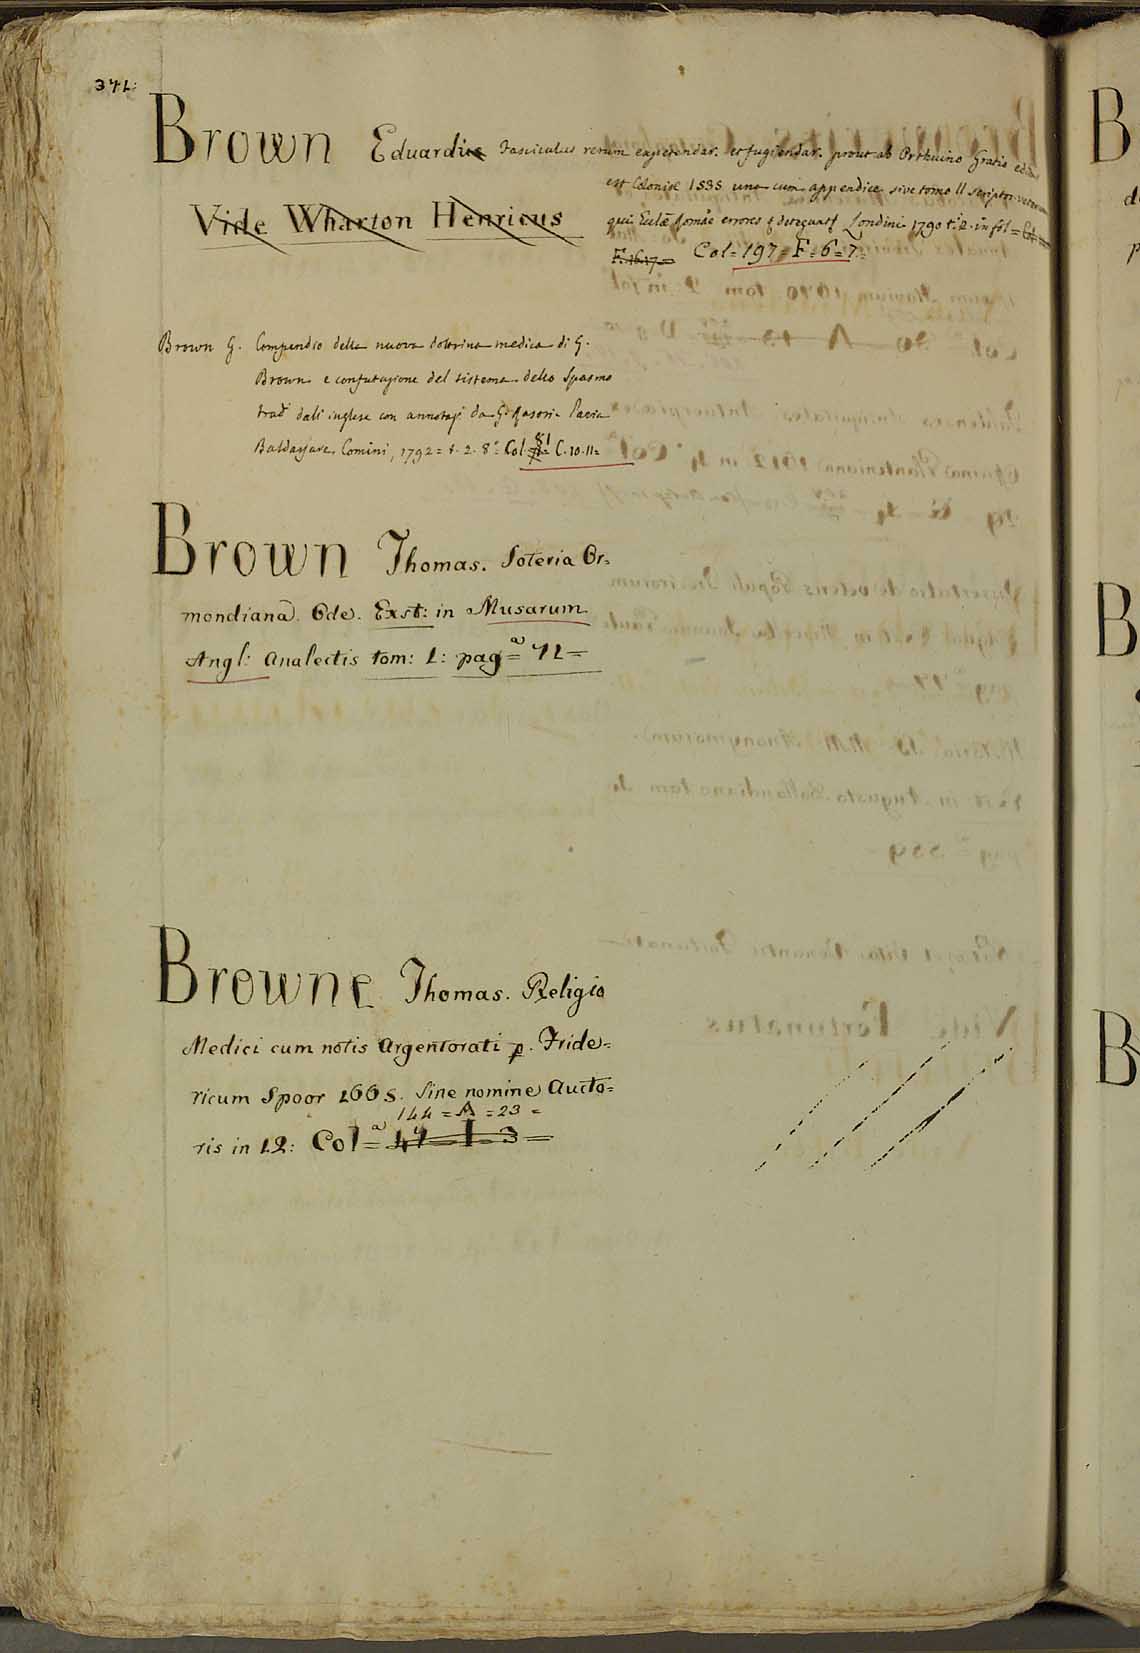 372:
Brown Eduardus Fasciculus rerum expetendar. et fugiendar. prout ab Orthuino Gratio editus
est Coloniæ 1535 una cum appendice sive tomo II scriptor. veterum
Vide Wharton Henricus
qui Eccłæ Romæ errores detegunt Londini 1790 t. 2. in fol =
F. 16. 17 = Col = 197 = F = 6 = 7 =
Brown G. Compendio della nuova dottrina medica di G.
Brown e confutazione del sistema dello Spasmo
trad. dall' inglese con annotaz. da G. Rasori Pavia
Baldassare Comini, 1792 = t. 2. 8.° Col = 81 = C. 10. 11 =
Brown Thomas. Soteria Or=
mondiana. Ode. Exst: in Musarum
Angl: Analectis tom: 2: pag=a 72=
Browne Thomas. Religio
Medici cum notis Argentorati p. Fride=
ricum Spoor 1665. Sine nomine Aucto=
144 = A = 23 =
ris in 12: Col=a 47 = I = 3 =